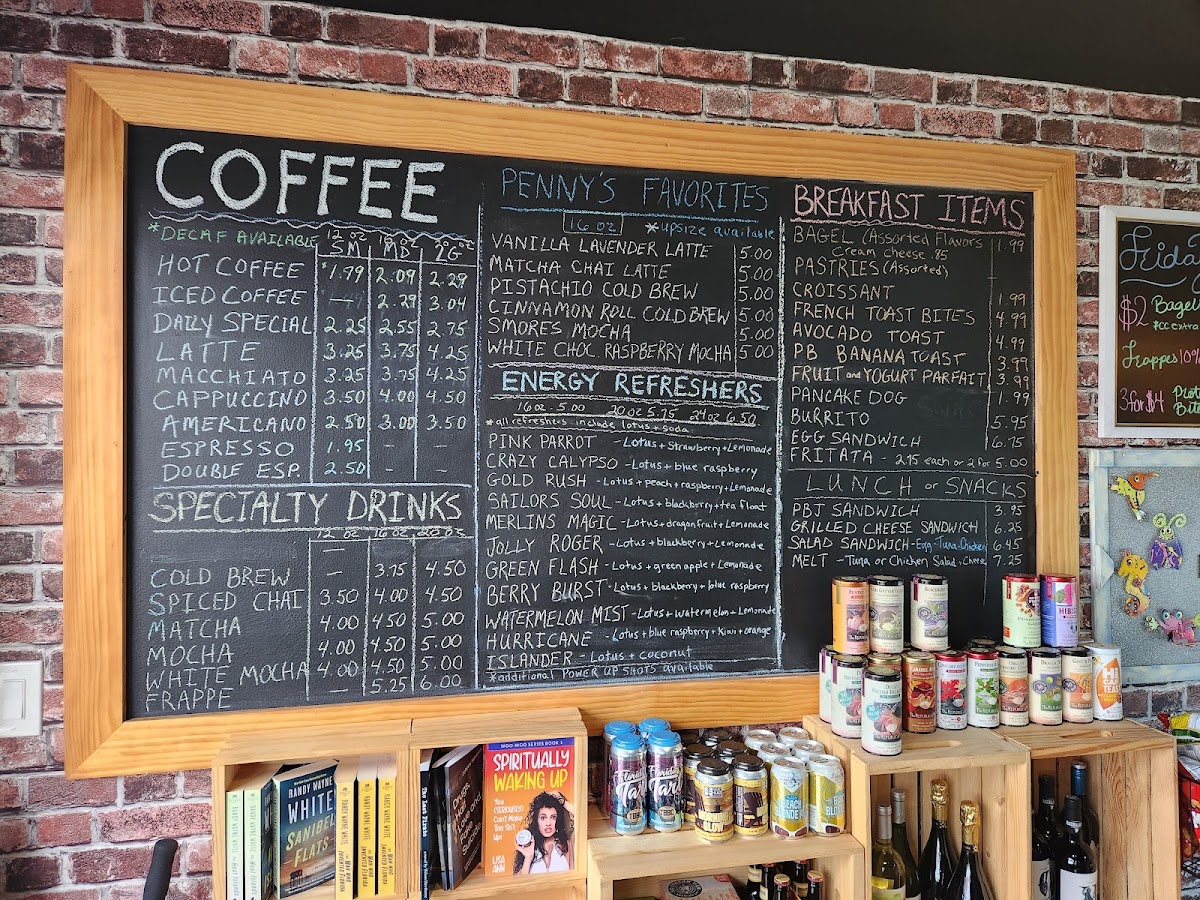 COFFEE
*DECAF AVAILABLE
12 oz SM 16 oz MD 20 oz LG
HOT COFFEE 1.99 2.09 2.29
ICED COFFEE — 2.29 3.04
DAILY SPECIAL 2.25 2.55 2.75
LATTE 3.25 3.75 4.25
MACCHIATO 3.25 3.75 4.25
CAPPUCCINO 3.50 4.00 4.50
AMERICANO 2.50 3.00 3.50
ESPRESSO 1.95 – –
DOUBLE ESP. 2.50 – –
SPECIALTY DRINKS
12 oz 16 oz 20 oz
COLD BREW — 3.75 4.50
SPICED CHAI 3.50 4.00 4.50
MATCHA 4.00 4.50 5.00
MOCHA 4.00 4.50 5.00
WHITE MOCHA 4.00 4.50 5.00
FRAPPE — 5.25 6.00
PENNY'S FAVORITES
16 oz *upsize available
VANILLA LAVENDER LATTE 5.00
MATCHA CHAI LATTE 5.00
PISTACHIO COLD BREW 5.00
CINNAMON ROLL COLD BREW 5.00
SMORES MOCHA 5.00
WHITE CHOC. RASPBERRY MOCHA 5.00
ENERGY REFRESHERS
16oz - 5.00 20oz 5.75 24oz 6.50
*all refreshers include lotus + soda
PINK PARROT - Lotus + Strawberry + Lemonade
CRAZY CALYPSO - Lotus + blue raspberry
GOLD RUSH - Lotus + peach + raspberry + Lemonade
SAILORS SOUL - Lotus + blackberry + tea float
MERLINS MAGIC - Lotus + dragonfruit + Lemonade
JOLLY ROGER - Lotus + blackberry + Lemonade
GREEN FLASH - Lotus + green apple + Lemonade
BERRY BURST - Lotus + blackberry + blue raspberry
WATERMELON MIST - Lotus + Watermelon + Lemonade
HURRICANE - Lotus + blue raspberry + Kiwi + orange
ISLANDER - Lotus + coconut
*additional POWER UP SHOTS available
BREAKFAST ITEMS
BAGEL (Assorted Flavors 1.99
Cream cheese .85
PASTRIES (Assorted)
CROISSANT 1.99
FRENCH TOAST BITES 4.99
AVOCADO TOAST 4.99
PB BANANA TOAST 3.99
FRUIT and YOGURT PARFAIT 3.99
PANCAKE DOG 1.99
BURRITO 5.95
EGG SANDWICH 6.75
FRITATA - 2.95 each or 2 for 5.00
LUNCH or SNACKS
PBJ SANDWICH 3.95
GRILLED CHEESE SANDWICH 6.25
SALAD SANDWICH - Egg - Tuna - Chicken 6.45
MELT - Tuna or Chicken Salad + Cheese 7.25
Frida
$2 Bagel
Frappes 10%
3 for $4
RANDY WAYNE
WHITE
SANIBEL
FLATS
WOO WOO SERIES BOOK 1
SPIRITUALLY
WAKING UP
You
(SERIOUSLY)
Can't Make
This Sh*t
Up!
LISA
Florida